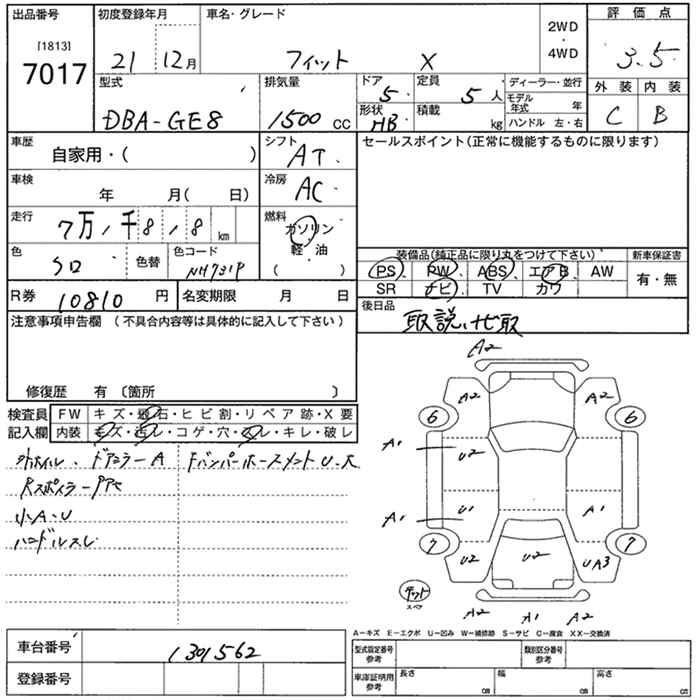 出品番号 初度登録年月 車名・グレード 評価点
[1813] 7017 21 12月 フィット X 2WD・4WD 3.5
型式 排気量 ドア 定員 ディーラー・並行 外装 内装
DBA-GE8 1500 CC 5 5人 モデル年式 年 C B
形状 HB 積載 kg ハンドル 左・右
車歴 自家用・( ) シフト AT セールスポイント(正常に機能するものに限ります)
車検 年 月( 日) 冷房 AC
走行 7万, 千8, 8 km 燃料 ガソリン
軽・油
( )
色 シロ 色替 色コード NH731P
装備品(純正品に限り丸をつけて下さい) 新車保証書
PS PW ABS エアB AW 有・無
SR ナビ TV カワ
R券 10810円 名変期限 月 日 後日品
取説、ナビ取
注意事項申告欄 (不具合内容等は具体的に記入して下さい)
修復歴 有 〔箇所 〕
検査員 FW キズ・飛石・ヒビ割・リペア跡・X要
記入欄 内装 キズ・汚レ・コゲ・穴・スレ・キレ・破レ
ドアミラーA FバンパーホースメントU・大
小A・U
ハンドルスレ
A2
A2 A2
6 6
A1 U2
A1 U1 A1
7 7
U2 U2 UA3
テット
スペア
A2 A1 A2
A−キズ E−エクボ U−凹み W−補修跡 S−サビ C−腐食 XX−交換済
車台番号 1301562 型式指定番号 参考 類別区分番号 参考
登録番号 車庫証明用 参考 長さ cm 幅 cm 高さ cm